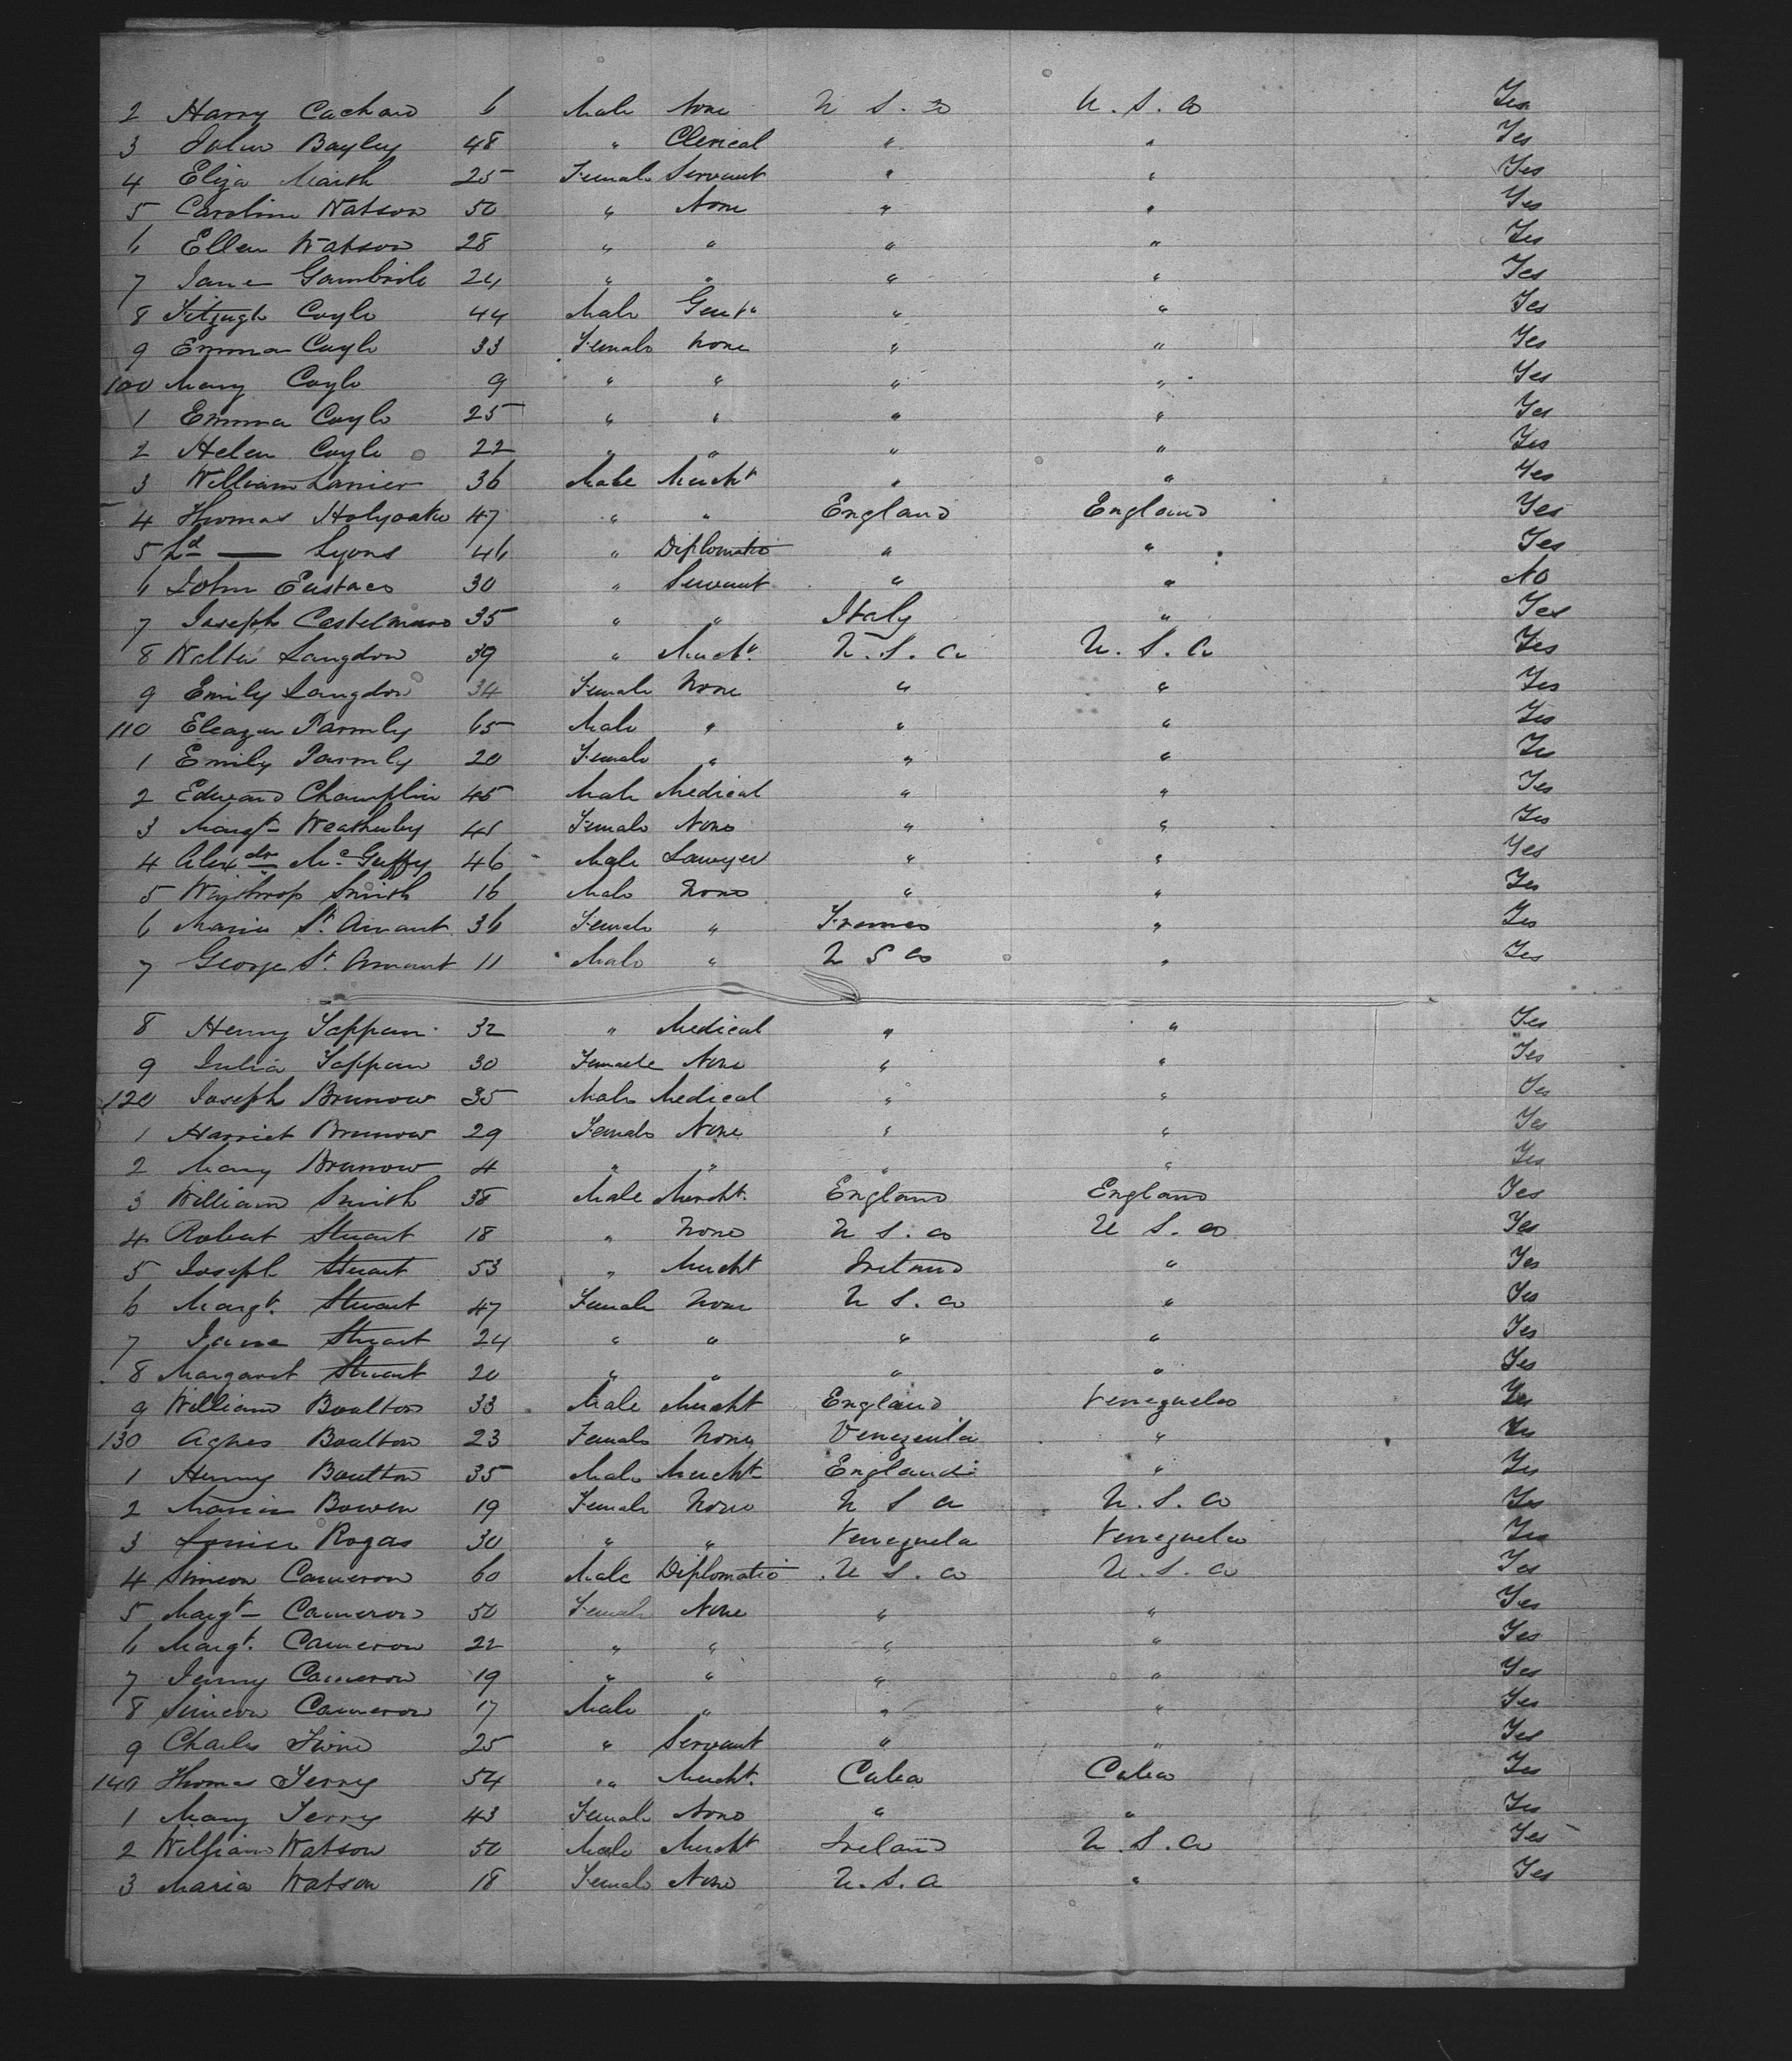 2 Harry Cachard 6 Male None U. S. a U. S. a Yes
3 John Bayley 48 " Clerical " " Yes
4 Eliza Marsh 25 Female Servant " " Yes
5 Caroline Watson 50 " None " " Yes
6 Ellen Watson 28 " " " " Yes
7 Jane Gambrile 24 " " " " Yes
8 Fitzugh Coyle 44 Male Gent " " Yes
9 Emma Coyle 33 Female None " " Yes
100 Mary Coyle 9 " " " " Yes
1 Emma Coyle 25 " " " " Yes
2 Helen Coyle 22 " " " " Yes
3 William Lanier 36 Male Mercht " " Yes
4 Thomas Holyoake 47 " " England England Yes
5 Ld — Lyons 46 " Diplomatic " " Yes
6 John Eustace 30 " Servant " " No
7 Joseph Castelmuro 35 " " Italy " Yes
8 Walter Langdon 39 " Mercht U. S. a U. S. a Yes
9 Emily Langdon 34 Female None " " Yes
110 Eleazer Parmly 65 Male " " " Yes
1 Emily Parmly 20 Female " " " Yes
2 Edward Champlin 45 Male Medical " " Yes
3 Margt Weatherby 45 Female None " " Yes
4 Alexdr Mc Guffy 46 Male Lawyer " " Yes
5 Winthrop Smith 16 Male None " " Yes
6 Marie St. Amant 36 Female " France " Yes
7 George St. Amant 11 Male " U S a " Yes
8 Henry Tappan 32 " Medical " " Yes
9 Julia Tappan 30 Female None " " Yes
120 Joseph Brunow 35 Male Medical " " Yes
1 Harriet Brunow 29 Female None " " Yes
2 Mary Brunow 4 " " " " Yes
3 William Smith 38 Male Mercht England England Yes
4 Robert Stuart 18 " None U S. a U S. a Yes
5 Joseph Stuart 53 " Mercht Ireland " Yes
6 Margt. Stuart 47 Female None U S. a " Yes
7 Jane Stuart 24 " " " " Yes
8 Margaret Stuart 20 " " " " Yes
9 William Boulton 33 Male Mercht England Venezuela Yes
130 Agnes Boulton 23 Female None Venezeula " Yes
1 Henry Boulton 35 Male Mercht England " Yes
2 Maria Bowen 19 Female None U S a U. S. a Yes
3 Louisa Rogas 30 " " Venezuela Venezuela Yes
4 Simeon Cameron 60 Male Diplomatic U S. a U. S. a Yes
5 Margt Cameron 50 Female None " " Yes
6 Margt. Cameron 22 " " " " Yes
7 Jenny Cameron 19 " " " " Yes
8 Simeon Cameron 17 Male " " " Yes
9 Charles 25 " Servant " " Yes
140 Thomas Terry 54 " Mercht. Cuba Cuba Yes
1 Mary Terry 43 Female None " " Yes
2 William Watson 50 Male Mercht Ireland U. S. a Yes
3 Maria Watson 18 Female None U. S. a " Yes